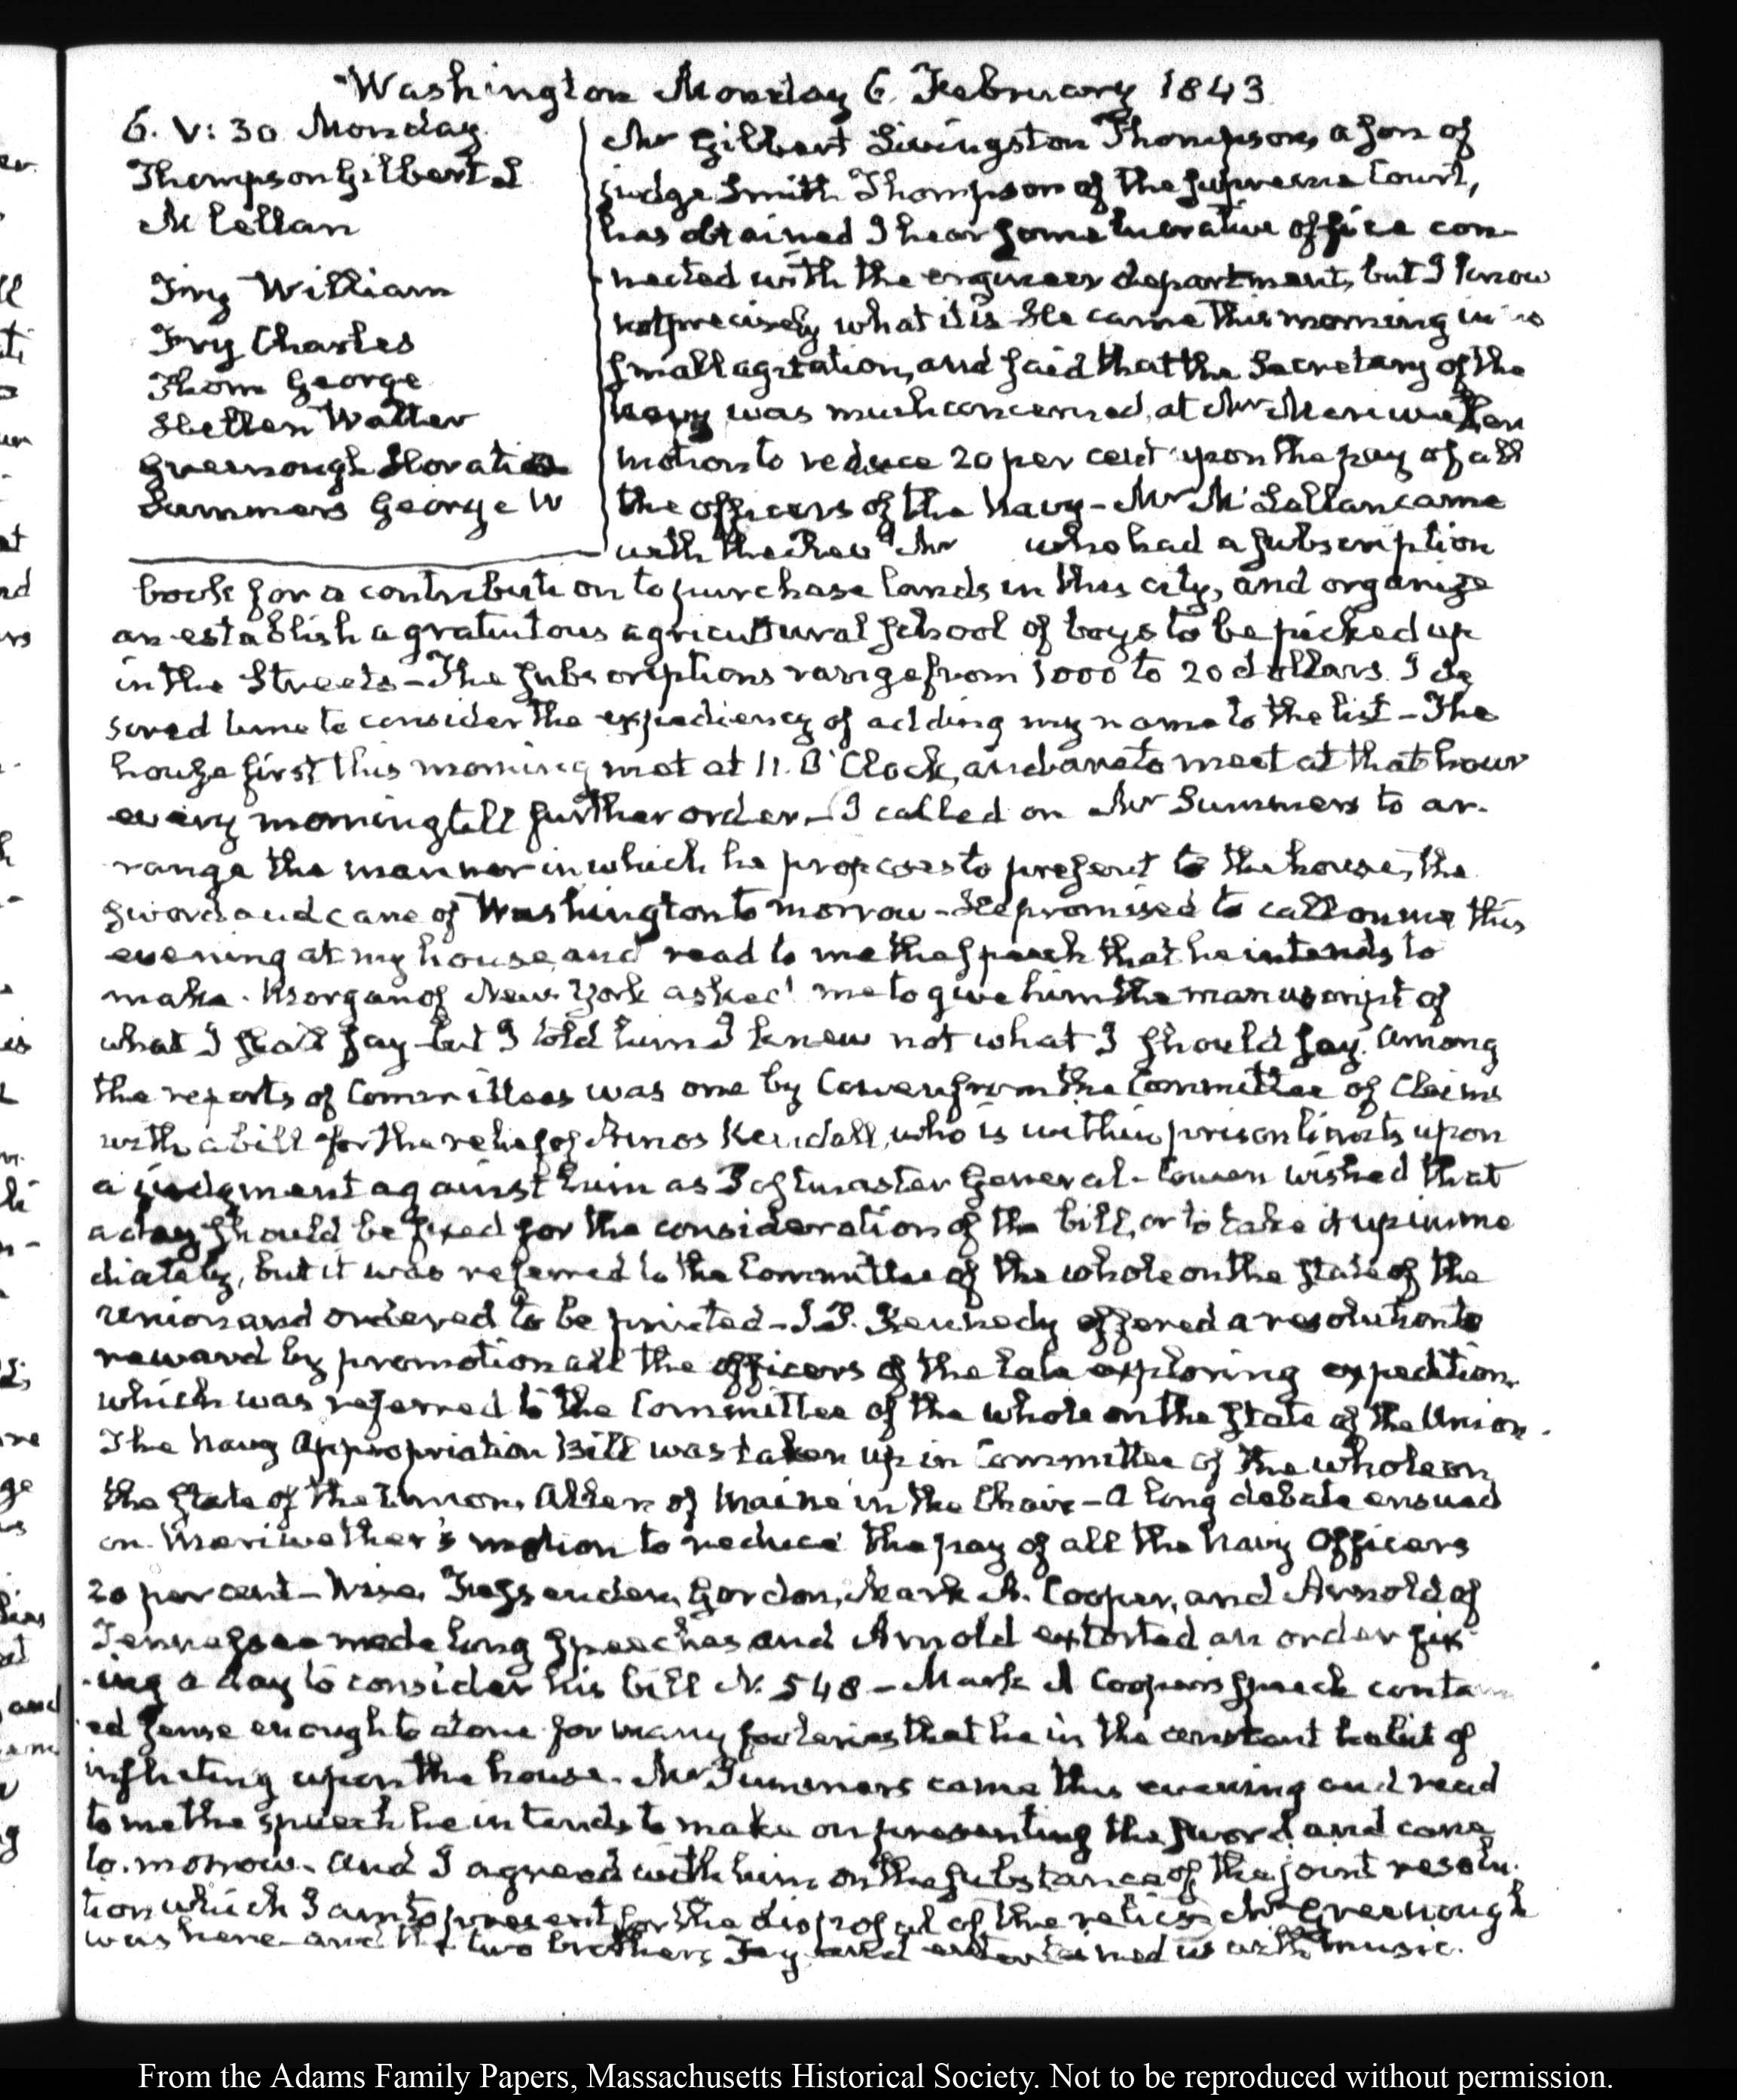 Washington Monday 6. February 1843
6. V: 30. Monday.
Thompson Gilbert L
McLellan
Fry William
Fry Charles
Thom George
Hellen Walter
Greenough Horatio
Summers George W
Mr Gilbert Livingston Thompson, a son of
judge Smith Thompson of the supreme Court,
has obtained I hear some lucrative office con-
nected with the engineer department, but I know
not precisely what it is. He came this morning in no
small agitation, and said that the Secretary of the
Navy was much concerned, at Mr Meriwether
motion to reduce 20 per cent upon the pay of all
the officers of the Navy – Mr McLellan came
with the Revd Mr who had a subscription
book for a contribution to purchase lands in this city, and organize
an establish a gratuitous agricultural school of boys to be picked up
in the Streets – The subscriptions range from 1000 to 20 dollars. I de
sired time to consider the expediency of adding my name to the list – The
house first this morning met at 11. O'Clock, and are to meet at that hour
every morning till further order – I called on Mr Summers to ar-
range the manner in which he proposes to present to the house, the
sword and cane of Washington to morrow – He promised to call on me this
evening at my house, and read to me the speech that he intends to
make. Morgan of New York asked me to give him the manuscript of
what I shall say but I told him I knew not what I should say. Among
the reports of Committees was one by Cowen from the Committee of Claims
with a bill for the relief of Amos Kendall, who is within prison limits upon
a judgment against him as Postmaster General – Cowen wished that
a day should be fixed for the consideration of the bill, or to take it up imme
diately, but it was referred to the Committee of the whole on the state of the
Union and ordered to be printed – J. P. Kennedy offered a resolution to
reward by promotion all the officers of the late exploring expedition.
which was referred to the Committee of the whole on the state of the Union.
The Navy Appropriation Bill was taken up in Committee of the whole on
the state of the Union, Allen of Maine in the Chair – A long debate ensued
on Meriwether's motion to reduce the pay of all the Navy Officers
20 per cent – Wise, Fessenden, Gordon, Mark A. Cooper, and Arnold of
Tennessee made long speeches and Arnold extorted an order fix-
-ing a day to consider his bill N. 548 – Mark A Cooper's speech contain
ed sense enough to atone for many fooleries that he in the constant habit of
inflicting upon the house. Mr Summers came this evening and read
to me the speech he intends to make on presenting the sword and cane
to-morrow – And I agreed with him on the substance of the joint resolu-
tion which I am to present for the disposal of the relics. Mr Greenough
was here – and the two brothers Fry and entertained us with music.
From the Adams Family Papers, Massachusetts Historical Society. Not to be reproduced without permission.